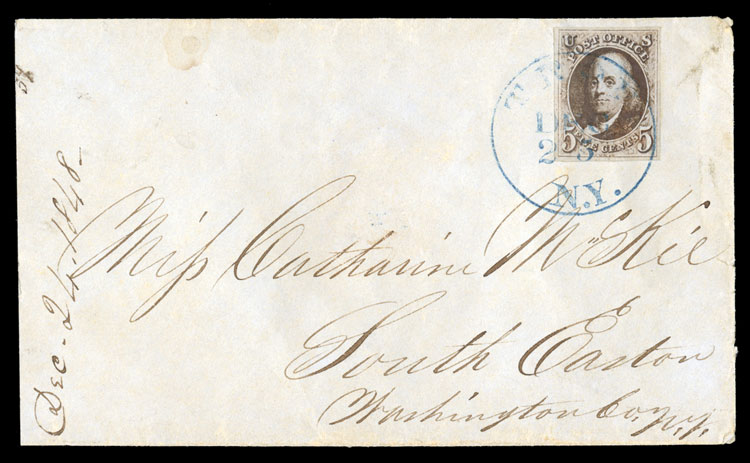 U S
POST OFFICE
5 FIVE CENTS 5
T
DEC
23
N.Y.
Dec. 24. 1848
Miss Catharine McKie
South Easton
Washington Co. N.Y.